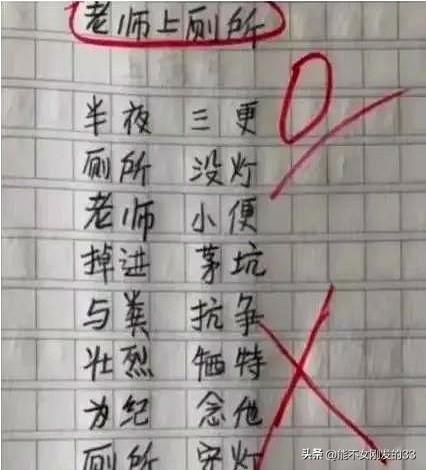 老师上厕所
0
半夜 三更
厕所 没灯
老师 小便
掉进 茅坑
与粪 抗争
壮烈 牺特
为纪 念他
厕所 灯
头条 @能不女刚发的33